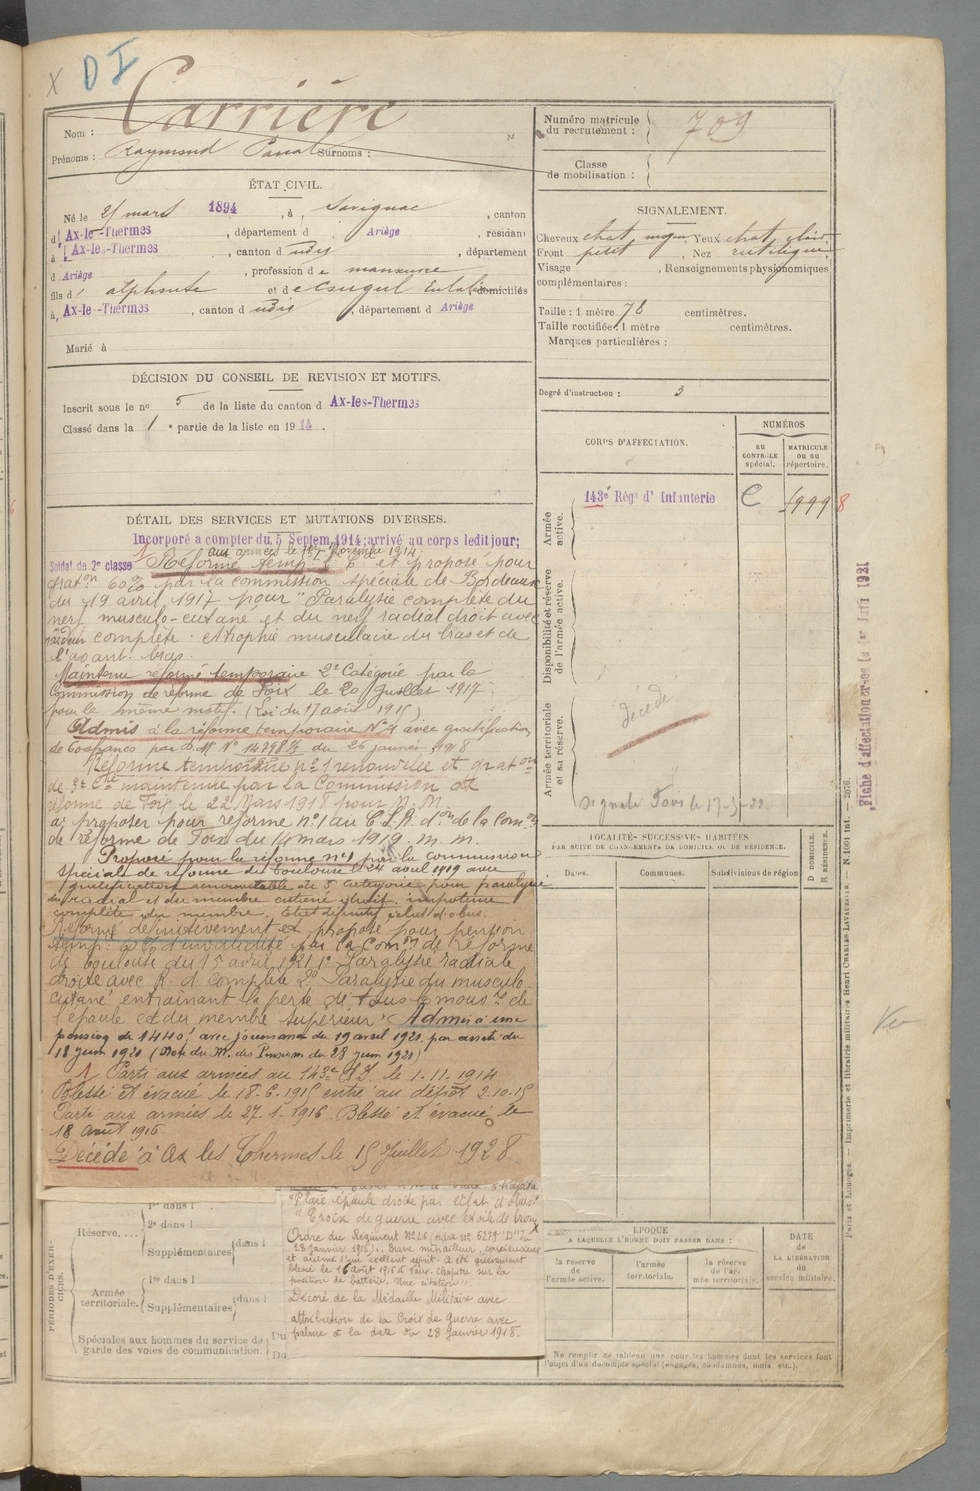 X D I
Nom : Carrière
Prénoms : Raymond Surnoms :
Numéro matricule du recrutement : 709
Classe de mobilisation :
ÉTAT CIVIL.
Né le mars 1894, à Savignac, canton
d Ax-le-Thermes, département d Ariège, résidant
à Ax-le-Thermes, canton d udis, département
d Ariège, profession de manœuvre
fils d' alphonse et d domiciliés
à Ax-le-Thermes, canton d udis, département d Ariège
Marié à
SIGNALEMENT.
Cheveux chat moyen Yeux chat clair
Front petit, Nez rectiligne
Visage , Renseignements physionomiques
complémentaires :
Taille : 1 mètre 78 centimètres.
Taille rectifiée : 1 mètre centimètres.
Marques particulières :
Degré d'instruction : 3
DÉCISION DU CONSEIL DE REVISION ET MOTIFS.
Inscrit sous le nº 5 de la liste du canton d Ax-les-Thermes
Classé dans la 1e partie de la liste en 1914.
CORPS D'AFFECTATION.
NUMÉROS
au CONTRÔLE spécial.
MATRICULE ou au répertoire.
Armée active.
143e Régt d' Infanterie
C
Disponibilité et réserve de l'armée active.
Armée territoriale et sa réserve.
décédé
DÉTAIL DES SERVICES ET MUTATIONS DIVERSES.
Incorporé a compter du 5 Septem. 1914; arrivé au corps ledit jour;
Soldat de 2e classe
aux armées le Novembre 1914.
Réformé temp. et proposé pour
graton 60% par la commission spéciale de Bordeaux
du 19 avril 1917 pour "Paralysie complète du
nerf musculo-cutané et du nerf radial droit avec
complète. Atrophie musculaire du bras et de
l'avant bras
Maintenu réformé temporaire 2e Catégorie par la
Commission de réforme de Foix le 20 Juillet 1917
pour le même motif. (Loi du 17 août 1915)
Admis à la réforme temporaire Nº 1 avec gratification
de 600 francs par D.M. Nº du 26 janvier 1918
Réforme temporaire nº 1 renouvelée et graton
de maintenue par la Commission de
réforme de Foix le 22 Mars 1918 pour M. M.
à proposer pour réforme nº 1 au C.S.R. don de la Comon
de réforme de Foix du 14 mars 1919. m. m.
Proposé pour la réforme nº 1 par la commission
spéciale de réforme de Toulouse le 24 avril 1919 avec
gratification renouvelable de 5e catégorie pour paralysie
du radial et du membre cutané droit. impotence
complète du membre. Etat définitif éclat d'obus.
Réformé définitivement et proposé pour pension
temp: d'invalidité par la Comon de Réforme
de Toulouse du 15 avril 1921 1º Paralysie radiale
droite avec R. d complète 2º Paralysie du musculo
cutané entraînant la perte de tous les mouvts de
l'épaule et du membre supérieur. Admis à une
pension de 1440f avec jouissance du 19 avril 1921 par arrêté du
18 juin 1921 (Note du M. des Pensions du 28 juin 1921)
1 Parti aux armées au 143e R.I. le 1.11.1914
Blessé et évacué le 18.6.1915 entré au dépôt 2.10.15
Parti aux armées le 27.1.1916. Blessé et évacué le
18 août 1916
Décédé à Ax les Thermes le 15 Juillet 1928
"Plaie épaule droite par éclat d'obus"
"Croix de guerre avec étoile de bronze
Ordre du Régiment
28 janvier 1918). Brave mitrailleur, consciencieux
et animé d'un excellent esprit. A été grièvement
blessé le 16 août 1916 à Vaux. Chapitre sur la
position de batterie. Une citation".
Décoré de la Médaille Militaire avec
attribution de la Croix de Guerre avec
palme à la date du 28 Janvier 1918.
PÉRIODES D'EXERCICES.
Réserve....
1re dans l
2e dans l
Supplémentaires dans l
Armée territoriale.
1re dans l
Supplémentaires dans l
Spéciales aux hommes du service de
garde des voies de communication.
Du
Du
LOCALITÉS SUCCESSIVES HABITÉES
PAR SUITE DE CHANGEMENTS DE DOMICILE OU DE RÉSIDENCE.
Dates.
Communes.
Subdivisions de région
D. DOMICILE.
R. RÉSIDENCE.
ÉPOQUE
A LAQUELLE L'HOMME DOIT PASSER DANS :
la réserve de l'armée active.
l'armée territoriale.
la réserve de l'armée territoriale.
DATE de LA LIBÉRATION du service militaire.
Ne remplir ce tableau que pour les hommes dont les services font
l'objet d'un décompte spécial (engagés, condamnés, omis, etc.).
Fiche d'affectation crsée le 1er Juin 1921
Paris et Limoges. — Imprimerie et librairie militaires Henri CHARLES-LAVAUZELLE.
Vu